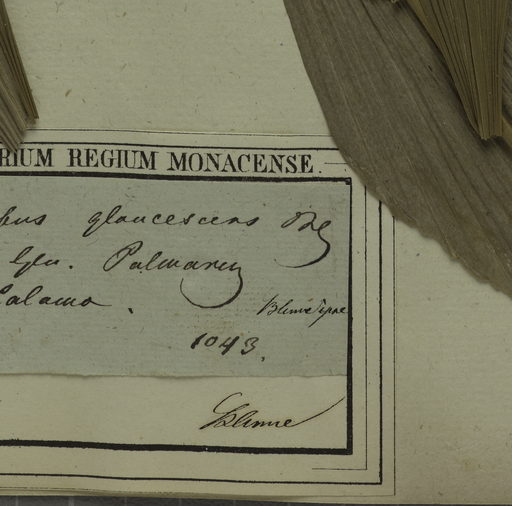 RIUM REGIUM MONACENSE.
glaucescens Bl
Gen. Palmarum
Calamo.
Blume
1043.
Blume